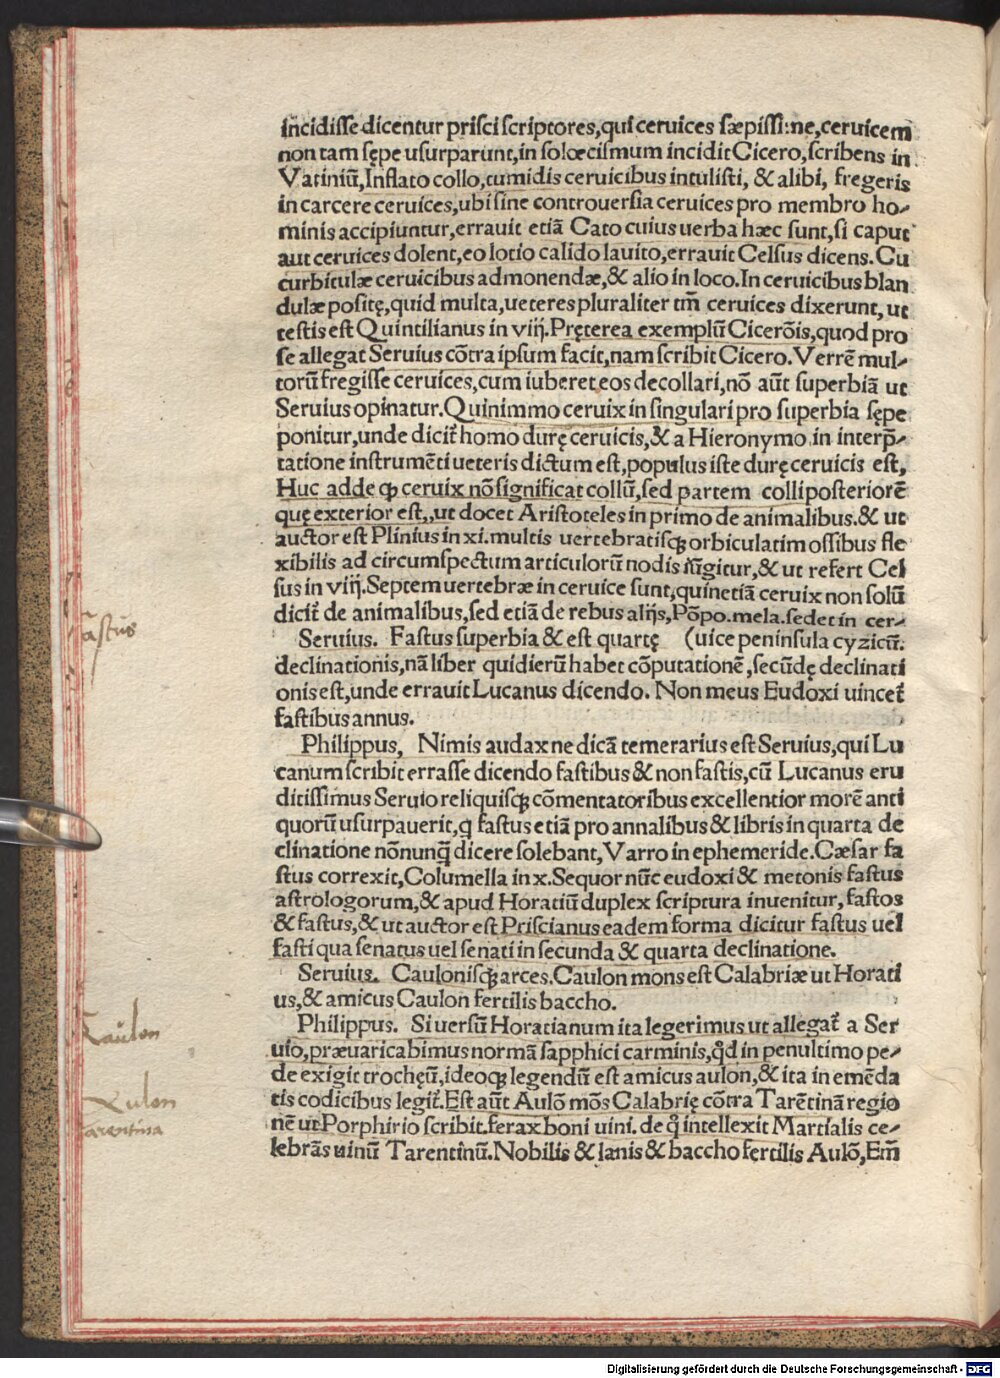 incidisse dicentur prisci scriptores,qui ceruices sæpissime,ceruicem
non tam sępe usurparunt,in solœcismum incidit Cicero,scribens in
Vatiniū,Inflato collo,tumidis ceruicibus intulisti, & alibi, fregeris
in carcere ceruices,ubi sine controuersia ceruices pro membro ho-
minis accipiuntur,errauit etiā Cato cuius uerba hæc sunt,si caput
aut ceruices dolent,eo lotio calido lauito,errauit Celsus dicens.Cu
curbitulæ ceruicibus admonendæ,& alio in loco.In ceruicibus blan
dulæ positę,quid multa,ueteres pluraliter tm̄ ceruices dixerunt,ut
testis est Quintilianus in viij.Pręterea exemplū Cicerōis,quod pro
se allegat Seruius cōtra ipsum facit,nam scribit Cicero.Verrē mul-
torū fregisse ceruices,cum iuberet eos decollari,nō aūt superbiā ut
Seruius opinatur.Quinimmo ceruix in singulari pro superbia sępe
ponitur,unde dicit̄ homo durę ceruicis,& a Hieronymo in interp̄-
tatione instrumēti ueteris dictum est,populus iste durę ceruicis est,
Huc adde ꝙ ceruix nō significat collū,sed partem colli posteriorē
quę exterior est,,ut docet Aristoteles in primo de animalibus.& ut
auctor est Plinius in xi.multis uertebratisqꝫ orbiculatim ossibus fle
xibilis ad circumspectum articulorū nodis iūgitur,& ut refert Cel
sus in viij.Septem uertebræ in ceruice sunt,quinetiā ceruix non solū
dicit̄ de animalibus,sed etiā de rebus alijs,Pōpo.mela.sedet in cer-
Seruius. Fastus superbia & est quartę (uice peninsula cyzicū.
declinationis,nā liber qui dierū habet cōputationē,secūdę declinati
onis est,unde errauit Lucanus dicendo. Non meus Eudoxi uincet̄
fastibus annus.
Philippus, Nimis audax ne dicā temerarius est Seruius,qui Lu
canum scribit errasse dicendo fastibus & non fastis,cū Lucanus eru
ditissimus Seruio reliquisqꝫ cōmentatoribus excellentior morē anti
quorū usurpauerit,q fastus etiā pro annalibus & libris in quarta de
clinatione nōnunq̄ dicere solebant,Varro in ephemeride.Cæsar fa
stus correxit,Columella in x.Sequor nūc eudoxi & metonis fastus
astrologorum,& apud Horatiū duplex scriptura inuenitur, fastos
& fastus,& ut auctor est Priscianus eadem forma dicitur fastus uel
fasti qua senatus uel senati in secunda & quarta declinatione.
Seruius. Caulonisqꝫ arces.Caulon mons est Calabriæ ut Horati
us,& amicus Caulon fertilis baccho.
Philippus. Si uersū Horatianum ita legerimus ut allegat̄ a Ser
uio,præuaricabimus normā sapphici carminis,qd̄ in penultimo pe-
de exigit trochęū,ideoqꝫ legendū est amicus aulon,& ita in emēda
tis codicibus legit̄.Est aūt Aulō mōs Calabrię cōtra Tarētinā regio
nē ut Porphirio scribit.ferax boni uini. de q̊ intellexit Martialis ce-
lebrās uinū Tarentinū.Nobilis & lanis & baccho fertilis Aulō,Em̄
Fastus
Caulon
Aulon
Tarentina
Digitalisierung gefördert durch die Deutsche Forschungsgemeinschaft - DFG